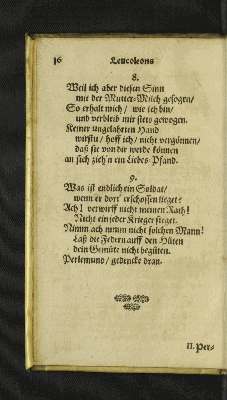 16 Leucoleons
8.
Weil ich aber diesen Sinn
mit der Mutter-Milch gesogen/
So erhalt mich/ wie ich bin/
und verbleib mir stets gewogen.
Keiner ungelahrten Hand
wirstu/ hoff ich/ nicht vergönnen/
daß sie von dir werde können
an sich zieh'n ein Liebes-Pfand.
9.
Was ist endlich ein Soldat/
wenn er dort erschossen lieget?
Ach! verwirff nicht meinen Rath!
Nicht ein jeder Krieger sieget.
Nimm ach nimm nicht solchen Mann!
Laß die Federn auff den Hüten
dein Gemüte nicht begüten.
Perlemund/ gedencke dran.
II. Per-